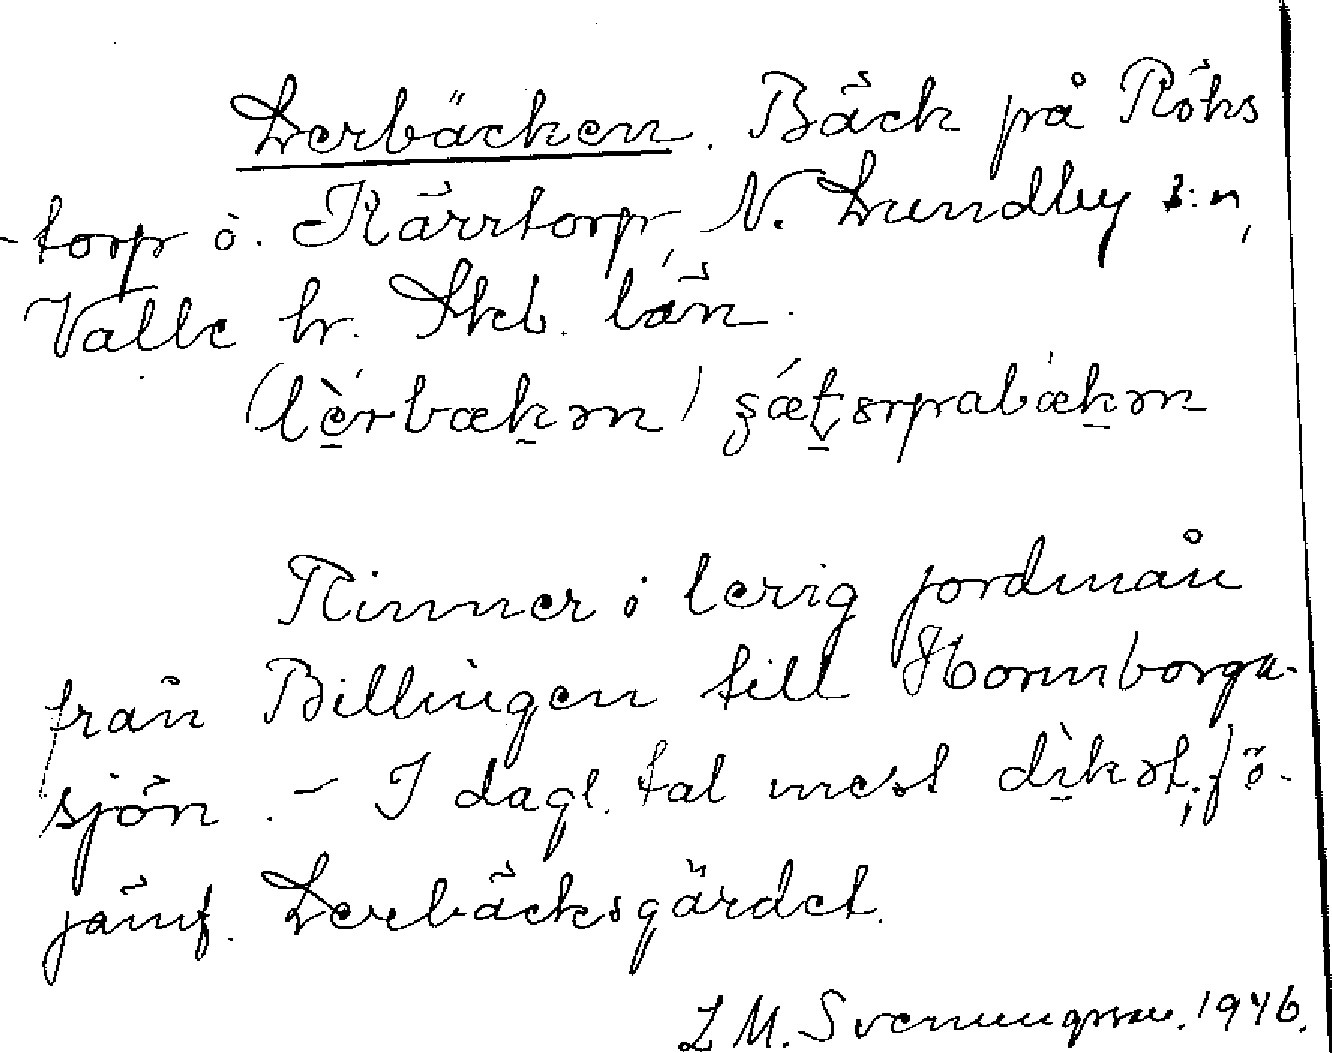 Lerbäcken. Bäck på Röks
-torp o. Kärrtorp, N. Lundby s:n,
Valle hr. Skb. län.
(lèrbækən) şætərpabækən
Rinner i lerig jordmån
från Billingen till Hornborga-
sjön. - I dagl. tal mest dìkət;
jämf. Lerbäcksgärdet.
L M. Svenungsson. 1946.